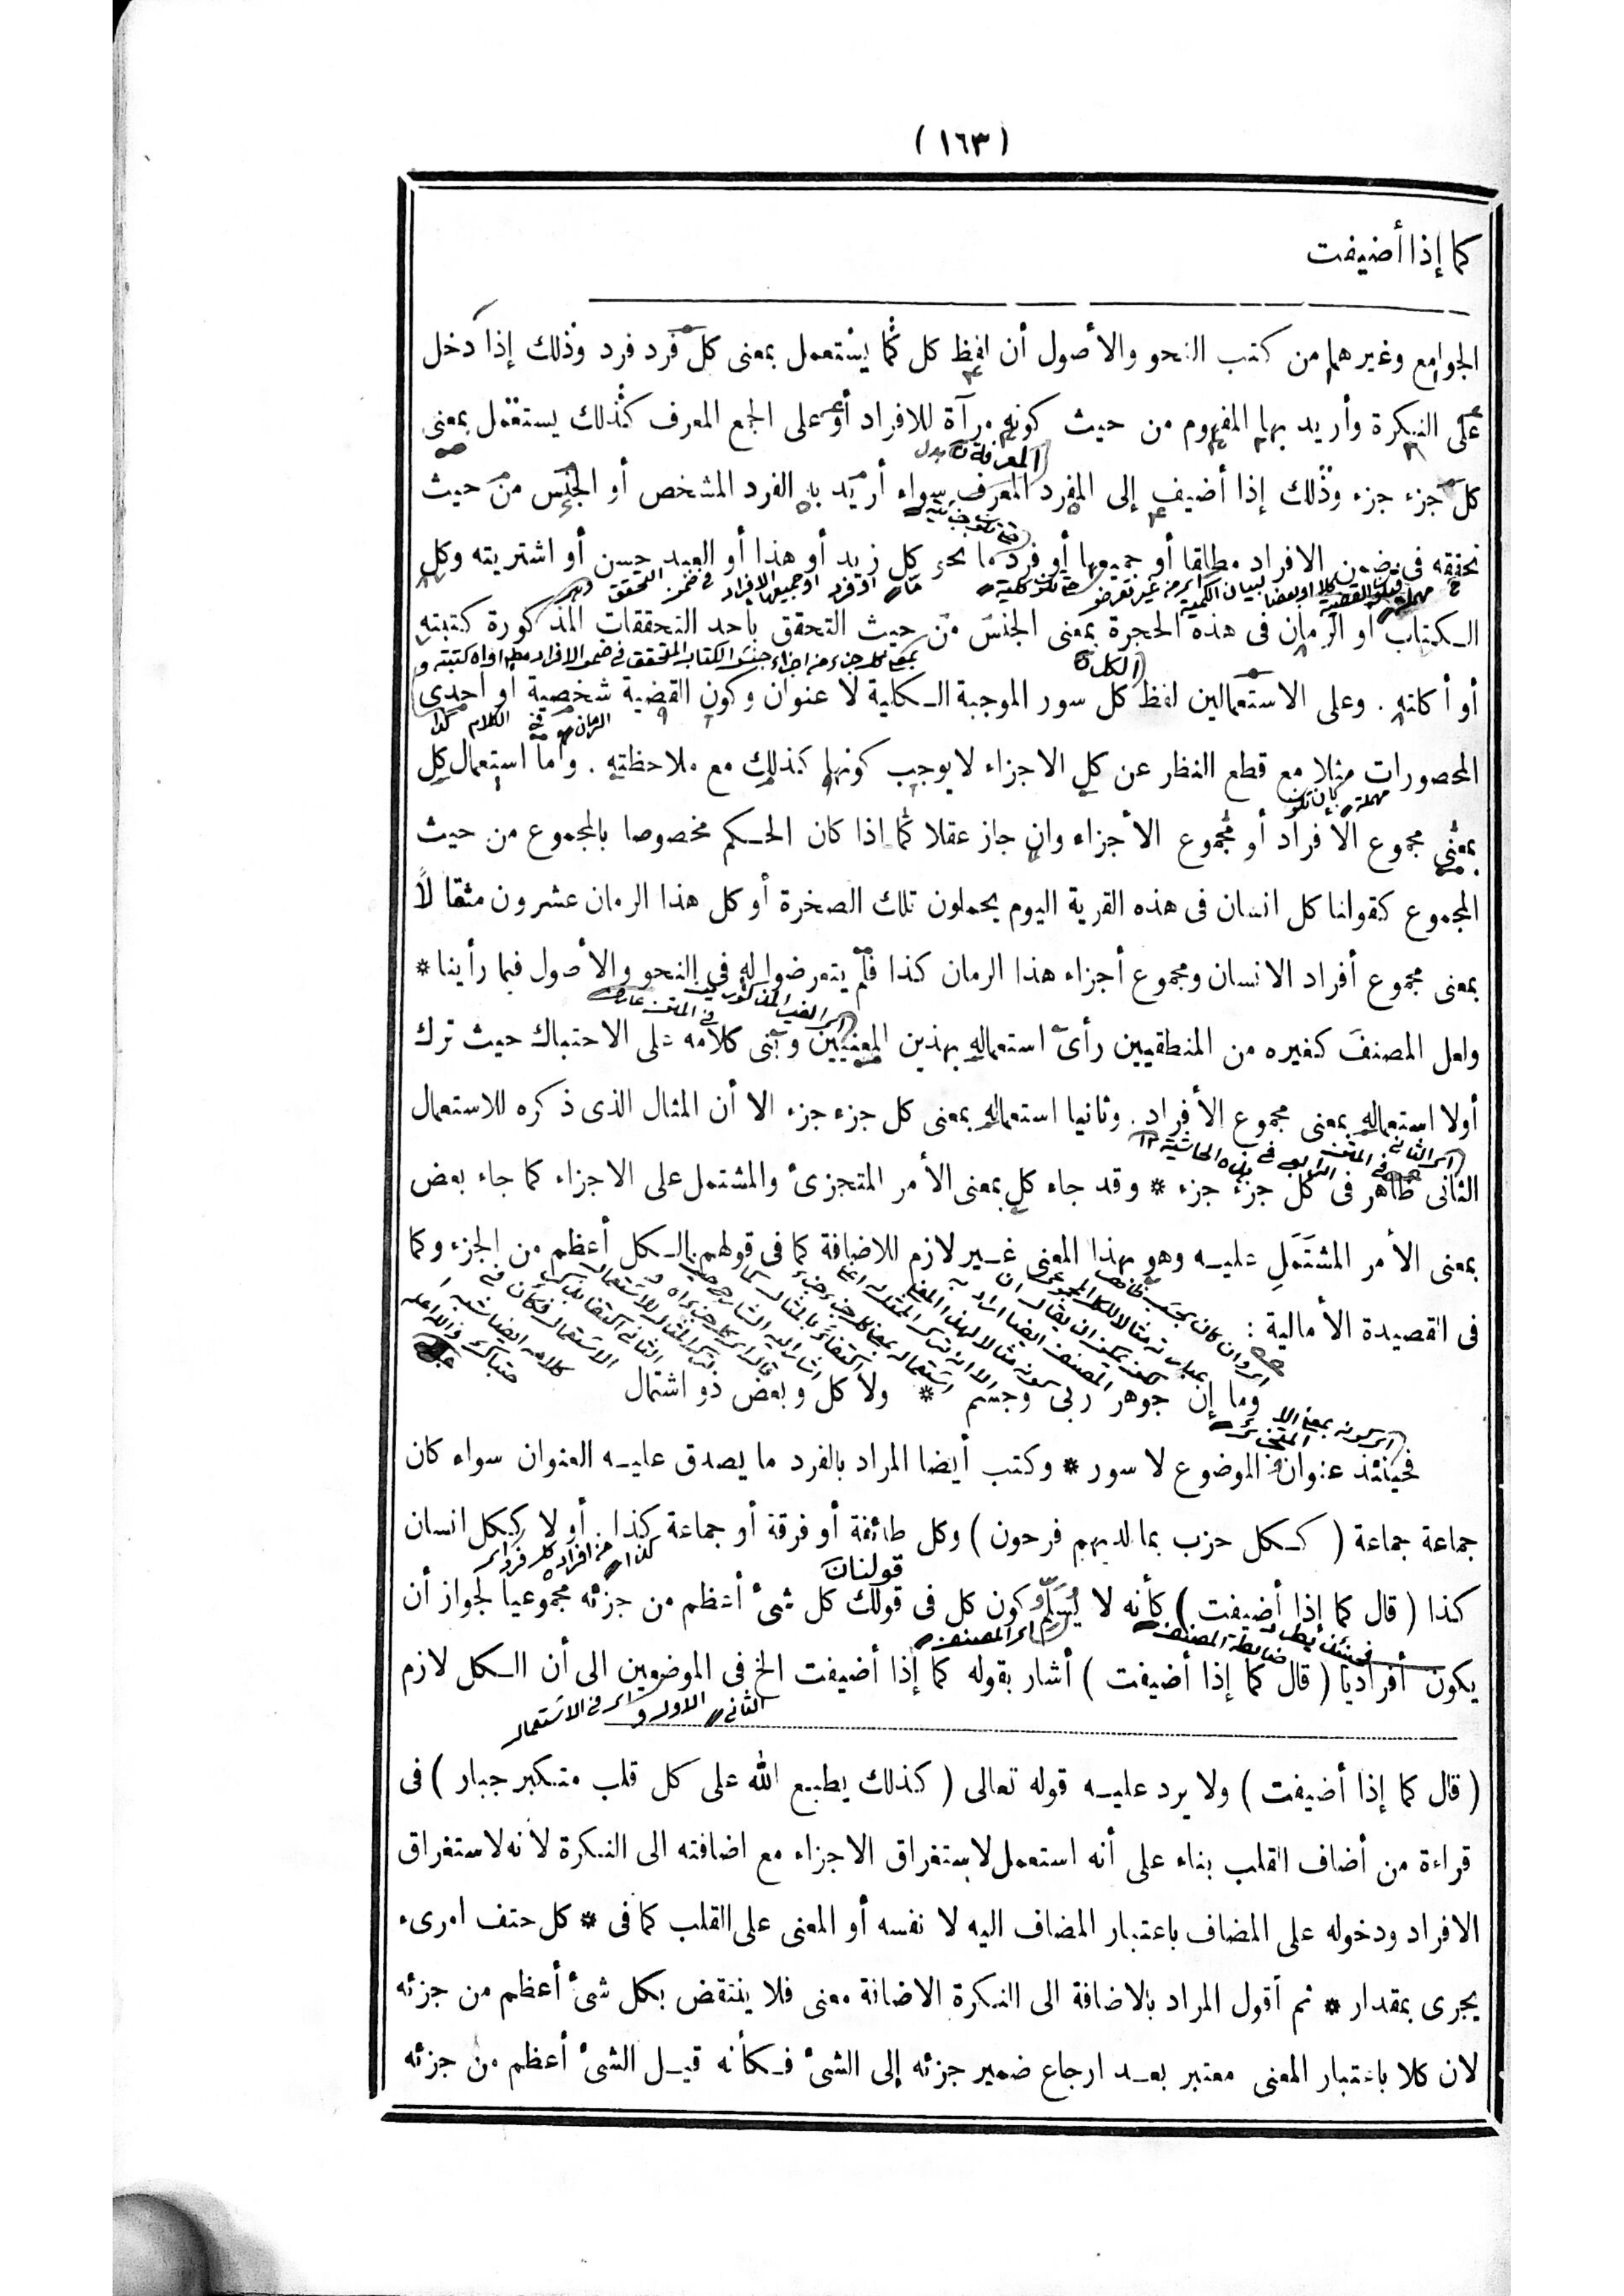 ( ١٦٣ )
كما إذا أضيفت
الجوامع وغيرهما من كتب النحو والأصول أن لفظ كل كما يستعمل بمعنى كل فرد فرد وذلك إذا دخل
على النكرة وأريد بها المفهوم من حيث كونه مرآة للافراد أو على الجمع المعرف كذلك يستعمل بمعنى
المعرفة
كل جزء جزء وذلك إذا أضيف إلى المفرد المعرف سواء أريد به الفرد المشخص أو الجنس من حيث
تحققه فى ضمن الافراد مطلقا أو جميعها أو فرد ما نحو كل زيد أو هذا أو العبد حسن أو اشتريته وكل
الكتاب أو الرمان فى هذه الحجرة بمعنى الجنس من حيث التحقق بأحد التحققات المذكورة كتبته
بمعنى كل جزء من اجزاء جنس الكتاب المتحقق فى ضمن الافراد
الكل
أو أكلته . وعلى الاستعمالين لفظ كل سور الموجبة الكلية لا عنوان وكون القضية شخصية أو احدى
المحصورات مثلا مع قطع النظر عن كل الاجزاء لا يوجب كونها كذلك مع ملاحظته . وأما استعمال كل
بأن تكون مهملة
بمعنى مجموع الافراد أو مجموع الأجزاء وان جاز عقلا كما اذا كان الحكم مخصوصا بالمجموع من حيث
المجموع كقولنا كل انسان فى هذه القرية اليوم يحملون تلك الصخرة أو كل هذا الرمان عشرون مثقالاً
بمعنى مجموع أفراد الانسان ومجموع أجزاء هذا الرمان كذا فلم يتعرضوا له فى النحو والأصول فيما رأينا *
ولعل المصنف كغيره من المنطقيين رأى استعماله بهذين المعنيين وبنى كلامه على الاحتباك حيث ترك
أولا استعماله بمعنى مجموع الأفراد . وثانيا استعماله بمعنى كل جزء جزء الا أن المثال الذى ذكره للاستعمال
الثانى ظاهر فى كل جزء جزء * وقد جاء كل بمعنى الأمر المتجزئ والمشتمل على الاجزاء كما جاء بعض
بمعنى الأمر المشتَمَلِ عليه وهو بهذا المعنى غير لازم للاضافة كما فى قولهم الكل أعظم من الجزء وكما
فى القصيدة الأمالية :
وما إن جوهر ربى وجسم * ولا كل وبعض ذو اشتمال
فحينئذ عنوان الموضوع لا سور * وكتب أيضا المراد بالفرد ما يصدق عليه العنوان سواء كان
جماعة جماعة ( ككل حزب بما لديهم فرحون ) وكل طائفة أو فرقة أو جماعة كذا . أو لا ككل انسان
قولنا
كذا ( قال كما إذا أضيفت ) كأنه لا يُسَلِّم كون كل فى قولك كل شئ أعظم من جزئه مجموعيا لجواز أن
اى المصنف
يكون أفراديا ( قال كما إذا أضيفت ) أشار بقوله كما إذا أضيفت الخ فى الموضعين الى أن الكل لازم
( قال كما إذا أضيفت ) ولا يرد عليه قوله تعالى ( كذلك يطبع الله على كل قلب متكبر جبار ) فى
قراءة من أضاف القلب بناء على أنه استعمل لاستغراق الاجزاء مع اضافته الى النكرة لأنه لاستغراق
الافراد ودخوله على المضاف باعتبار المضاف اليه لا نفسه أو المعنى على القلب كما فى * كل حتف امرىء
يجرى بمقدار * ثم أقول المراد بالاضافة الى النكرة الاضافة معنى فلا ينتقض بكل شئ أعظم من جزئه
لان كلا باعتبار المعنى معتبر بعد ارجاع ضمير جزئه إلى الشئ فكأنه قيل الشئ أعظم من جزئه